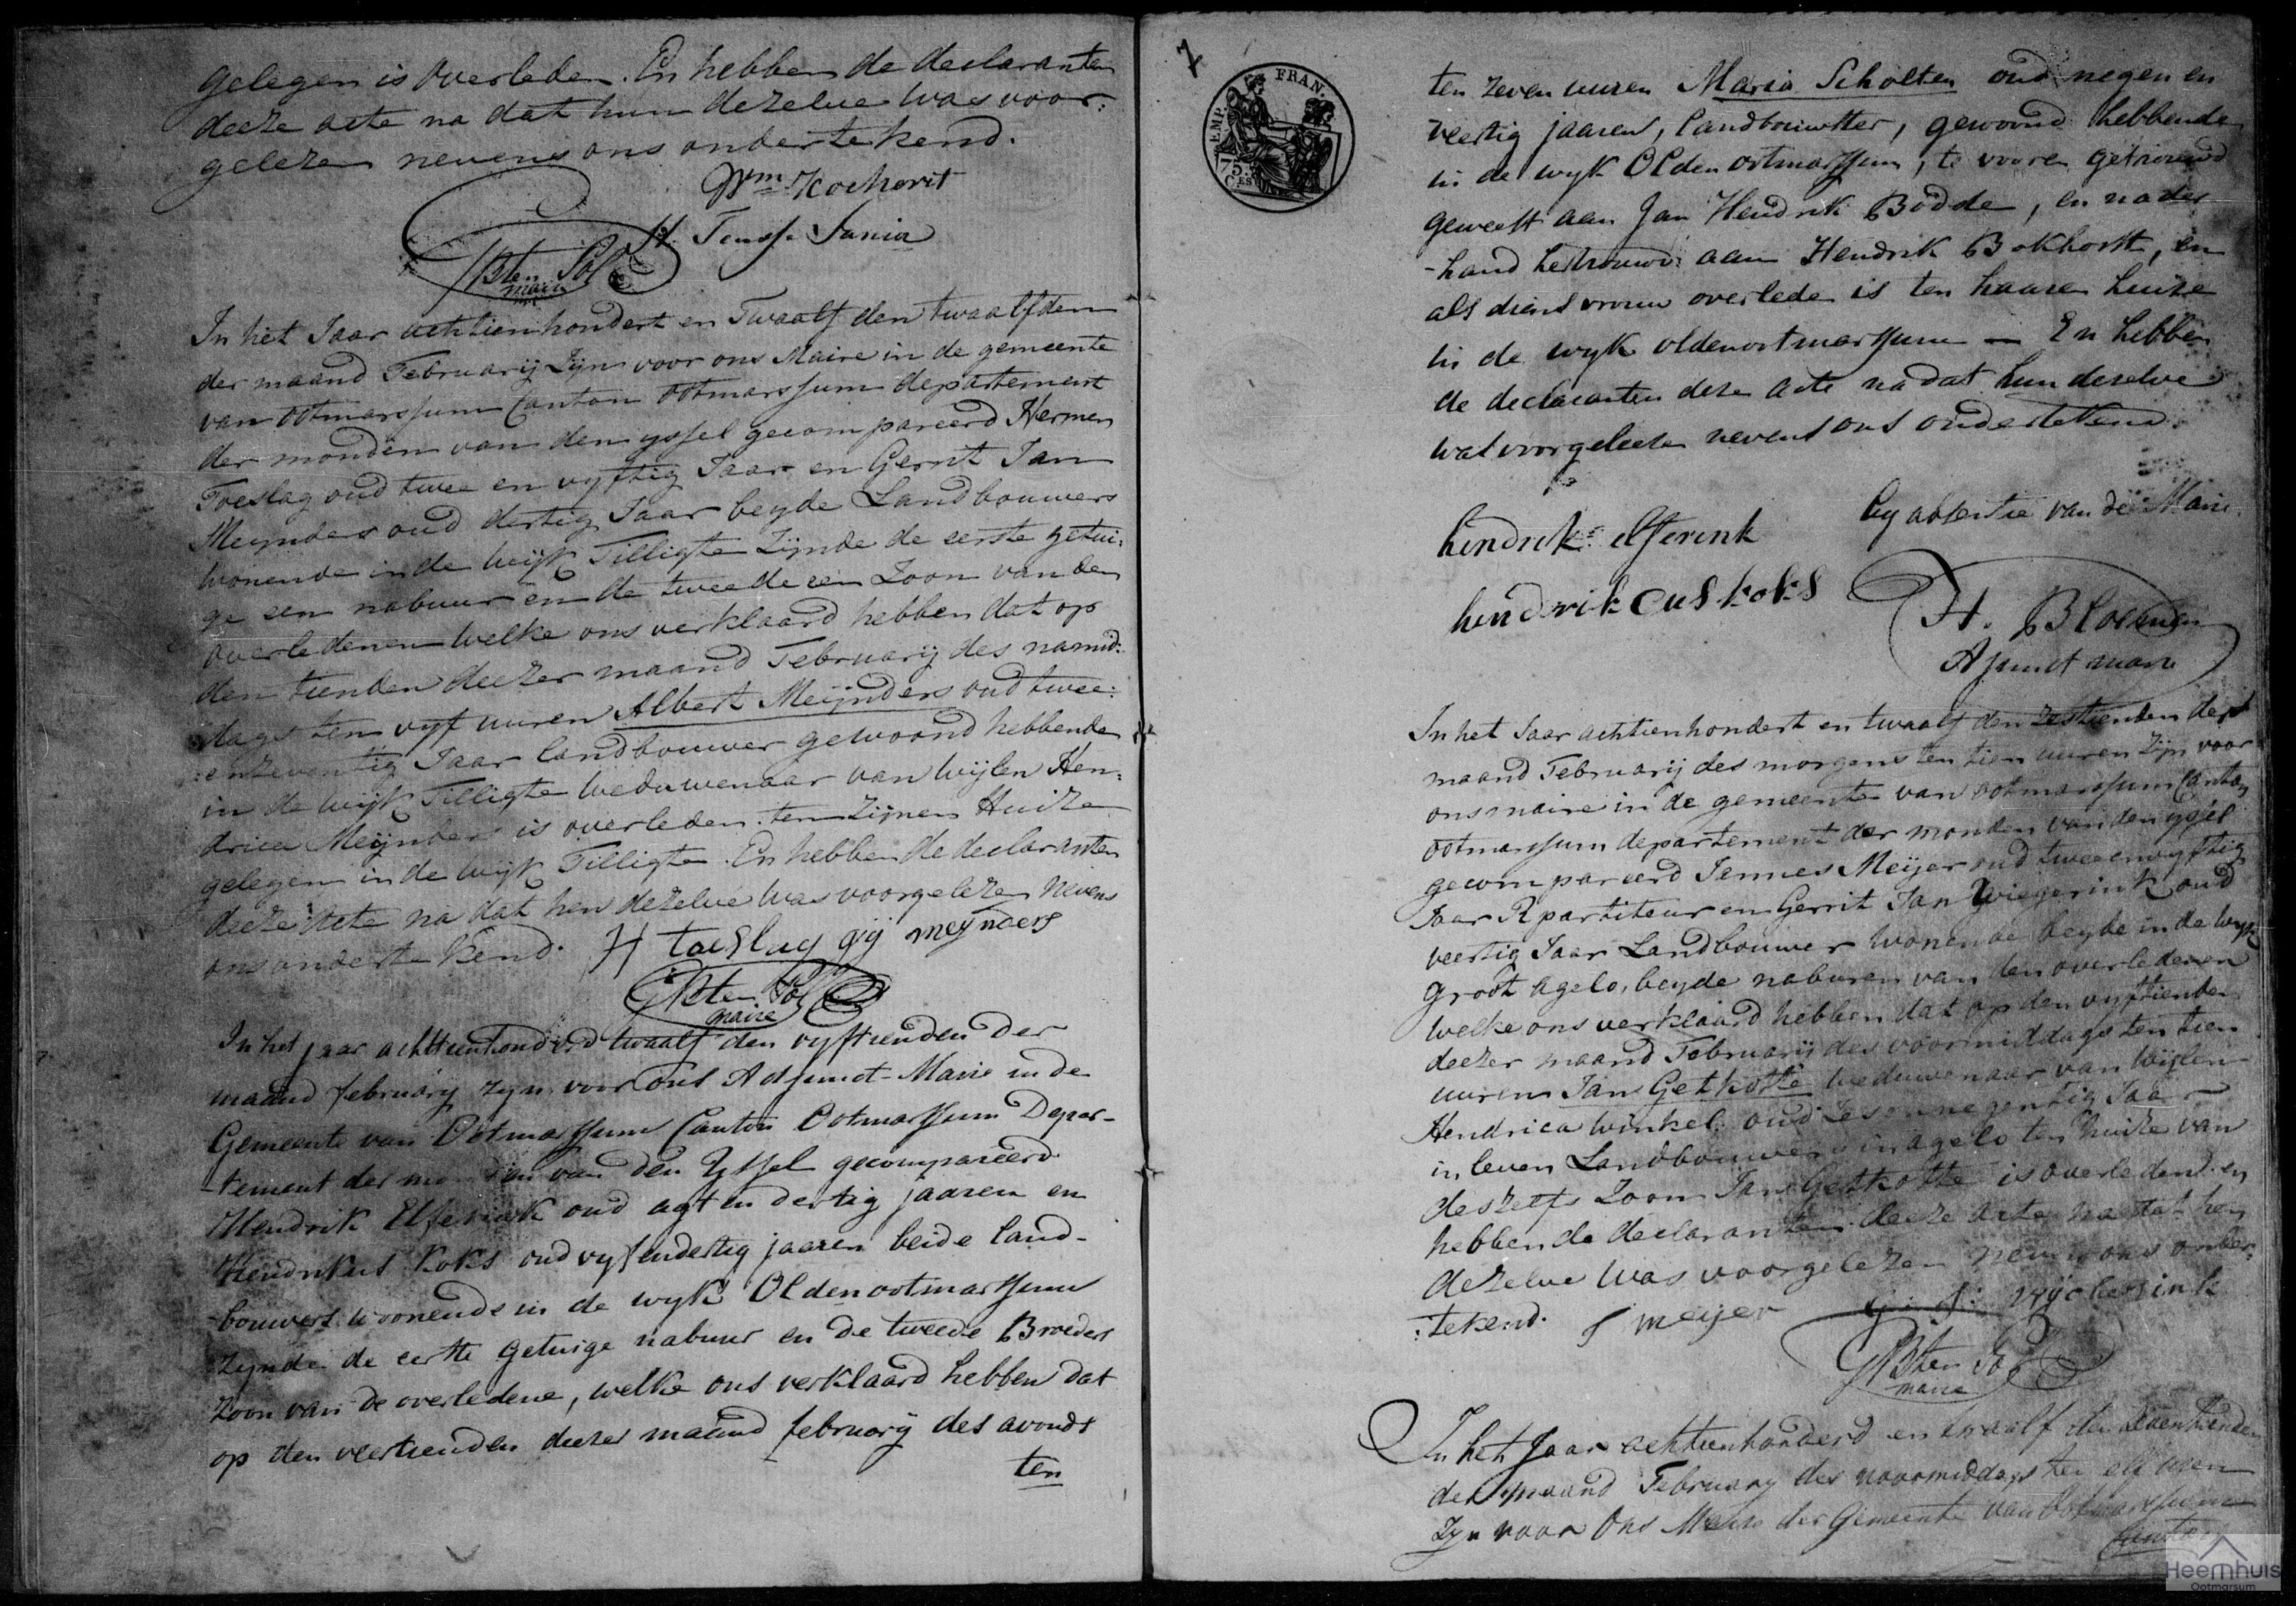 gelegen is overleden. En hebben de declaranten
deeze acte na dat hun dezelve was voor:
gelezen nevens ons ondertekend.
Wm Kockerit
H. Junior
maire
In het Jaar achtienhondert en Twaalf den twaalfden
der maand Februarij Zijn voor ons Maire in de gemeente
van ootmarssum Canton ootmarssum departement
der monden van den yssel gecompareerd Hermen
Toeslag oud twee en vyftig Jaar en Gerrit Jan
Meijnders oud dertig Jaar beyde Landbouwers
wonende in de wijk Tilligte Zijnde de eerste getui:
ge een nabuur en de tweede een Zoon van den
overledenen welke ons verklaard hebben dat op
den tienden deezer maand Februarij des namid:
dags ten vyf uuren Albert Meijnders oud twee:
:enzeventig Jaar landbouwer gewoond hebbende
in de wijk Tilligte weduwenaar van wijlen Hen:
drica Meijnders is overleden ten zijnen Huize
gelegen in de wijk Tilligte. En hebben de declaranten
deeze acte na dat hen dezelve was voorgelezen nevens
ons ondertekend. H toeslag gij meynders
maire
In het jaar achttienhonderd twaalf den vyftienden der
maand february zyn voor ons Adjunct-Maire in de
Gemeente van Ootmarssum Canton Ootmarssum Depar-
-tement der monden van den Yssel gecompareerd
Hendrik Elferink oud agt en dertig jaaren en
Hendrikus Koks oud vyf en dertig jaaren beide land-
bouwers woonende in de wyk Oldenootmarssum
zynde de eerste getuige nabuur en de tweede Broeders
zoon van de overledene, welke ons verklaard hebben dat
op den veertienden deezer maand february des avonds
ten
7
EMP. FRAN.
75. CES
ten zeven uuren Maria Scholten oud negen en
veertig jaaren, Landbouwster, gewoond hebbende
in de wyk Oldenootmarssum, te vooren getrouwd
geweest aan Jan Hendrik Bodde, en nader
-hand hertrouwd aan Hendrik Bokhorst, en
als diens vrouw overleden is ten haaren huize
in de wyk oldenootmarssum — En hebben
de declaranten deze acte nadat hun deselve
was voorgeleesen nevens ons ondertekend.
by absentie van de Maire
hendrik elferink
hendrikcus koks
H. Bloemen
Ajunct maire
In het Jaar achtienhondert en twaalf den zestienden der
maand Februarij des morgens ten tien uuren Zijn voor
ons maire in de gemeente van ootmarssum Canton
ootmarssum departement der monden van den yssel
gecompareerd Jannes Meijer oud twee en vyftig
Jaar Rpartiteur en Gerrit Jan Wiegerink oud
veertig Jaar Landbouwer wonende beyde in de wyk
groot agelo, beyde naburen van den overledenen
welke ons verklaard hebben dat op den vyftienden
deezer maand Februarij des voormiddags ten tien
uuren Jan Getkotte weduwenaar van wijlen
Hendrica Winkel oud Zes en negentig Jaar
in leven Landbouwer in agelo ten huize van
deszelfs Zoon Jan Getkotte is overleden. en
hebben de declaranten deeze acte na dat hen
dezelve was voorgelezen nevens ons onder:
:tekend. J meijer
maire
In het Jaar achtienhonderd en twaalf den Zeventienden
der maand February des voormiddags ten elf uren
Zyn voor Ons Maire der Gemeente van Ootmarssum
Canton
Heemhuis
Ootmarsum